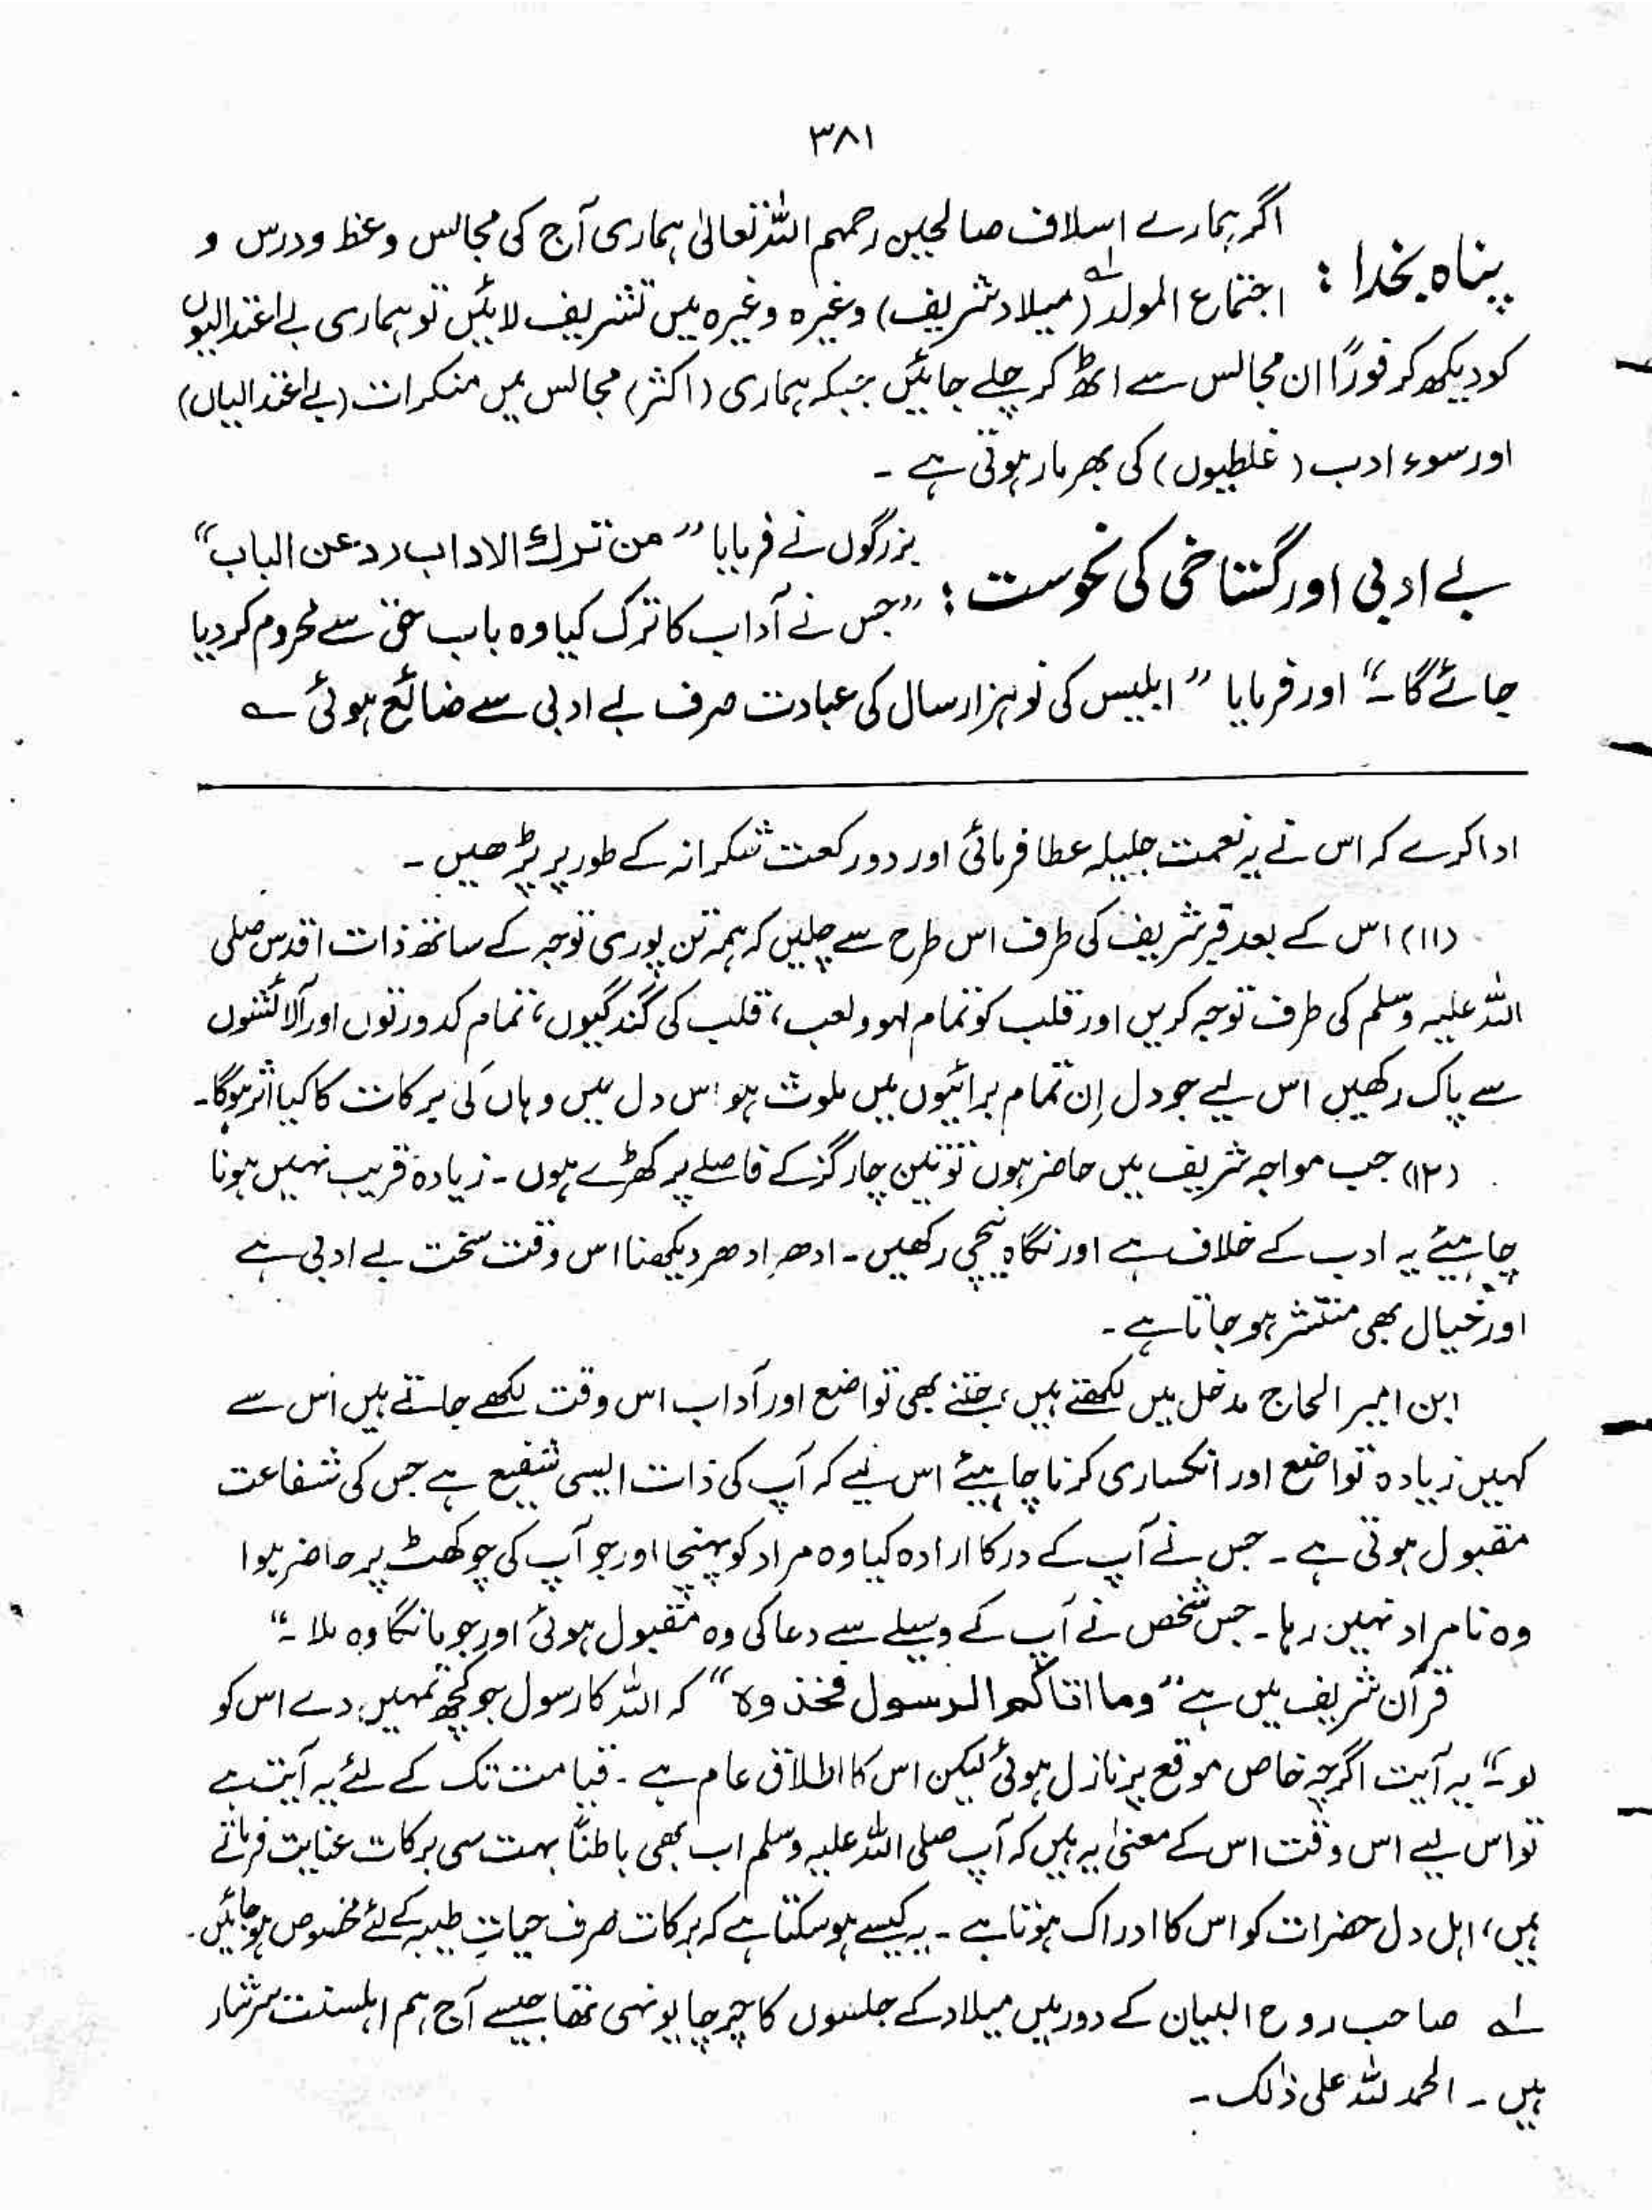 ۳۸۱
پناہ بخدا : اگر ہمارے اسلاف صالحین رحمہم اللہ تعالیٰ ہماری آج کی مجالس وعظ و درس و
اجتماع المولد لے (میلاد شریف) وغیرہ وغیرہ میں تشریف لائیں تو ہماری بے اعتدالیوں
کو دیکھ کر فوراً ان مجالس سے اٹھ کر چلے جائیں جبکہ ہماری (اکثر) مجالس میں منکرات (بے اعتدالیاں)
اور سوء ادب (غلطیوں) کی بھرمار ہوتی ہے ۔
بے ادبی اور گستاخی کی نحوست : بزرگوں نے فرمایا ”من ترك الاداب رد عن الباب“
”جس نے آداب کا ترک کیا وہ باب حق سے محروم کر دیا
جائے گا ۔“ اور فرمایا ”ابلیس کی نو ہزار سال کی عبادت صرف بے ادبی سے ضائع ہوئی ؎
ادا کرے کہ اس نے یہ نعمت جلیلہ عطا فرمائی اور دو رکعت شکرانہ کے طور پر پڑھیں ۔
(۱۱) اس کے بعد قبر شریف کی طرف اس طرح سے چلیں کہ ہمہ تن پوری توجہ کے ساتھ ذات اقدس صلی
اللہ علیہ وسلم کی طرف توجہ کریں اور قلب کو تمام لہو و لعب، قلب کی گندگیوں، تمام کدورتوں اور آلائشوں
سے پاک رکھیں اس لیے جو دل اِن تمام برائیوں میں ملوث ہو اس دل میں وہاں کی برکات کا کیا اثر ہوگا۔
(۱۲) جب مواجہ شریف میں حاضر ہوں تو تین چار گز کے فاصلے پر کھڑے ہوں ۔ زیادہ قریب نہیں ہونا
چاہیئے یہ ادب کے خلاف ہے اور نگاہ نیچی رکھیں ۔ ادھر ادھر دیکھنا اس وقت سخت بے ادبی ہے
اور خیال بھی منتشر ہو جاتا ہے ۔
ابن امیر الحاج مدخل میں لکھتے ہیں، جتنے بھی تواضع اور آداب اس وقت لکھے جاتے ہیں اس سے
کہیں زیادہ تواضع اور انکساری کرنا چاہیئے اس لیے کہ آپ کی ذات ایسی شفیع ہے جس کی شفاعت
مقبول ہوتی ہے ۔ جس نے آپ کے در کا ارادہ کیا وہ مراد کو پہنچا اور جو آپ کی چوکھٹ پر حاضر ہوا
وہ نامراد نہیں رہا ۔ جس شخص نے آپ کے وسیلے سے دعا کی وہ مقبول ہوئی اور جو مانگا وہ ملا ۔“
قرآن شریف میں ہے ”وما اتاكم الرسول فخذوہ“ کہ اللہ کا رسول جو کچھ تمہیں دے اس کو
لو ۔“ یہ آیت اگرچہ خاص موقع پر نازل ہوئی لیکن اس کا اطلاق عام ہے ۔ قیامت تک کے لئے یہ آیت ہے
تو اس لیے اس وقت اس کے معنیٰ یہ ہیں کہ آپ صلی اللہ علیہ وسلم اب بھی باطناً بہت سی برکات عنایت فرماتے
ہیں، اہل دل حضرات کو اس کا ادراک ہوتا ہے ۔ یہ کیسے ہو سکتا ہے کہ برکات صرف حیاتِ طیبہ کے لئے مخصوص ہو جائیں ۔
لے صاحب روح البیان کے دور میں میلاد کے جلسوں کا چرچا یونہی تھا جیسے آج ہم اہلسنت سرشار
ہیں ۔ الحمد للہ علی ذٰلک ۔